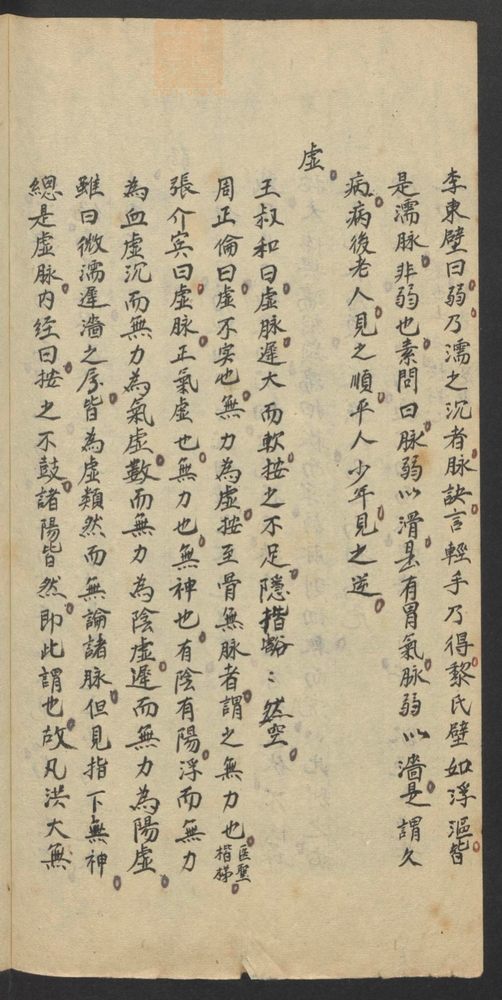 李東壁曰弱乃濡之沉者脉訣言輕手乃得黎氏壁如浮漚皆
是濡脉非弱也素問曰脉弱以滑是有胃氣脉弱以濇是謂久
病病後老人見之順平人少年見之逆
虛
王叔和曰虛脉遲大而軟按之不足隱揩豁〻然空
周正倫曰虛不实也無力為虛按至骨無脉者謂之無力也醫聖揩梯
張介宾曰虛脉正氣虛也無力也無神也有陰有陽浮而無力
為血虛沉而無力為氣虛數而無力為陰虛遲而無力為陽虛
雖曰微濡遲濇之属皆為虛類然而無論諸脉但見指下無神
總是虛脉内経曰按之不鼓諸陽皆然即此謂也故凡洪大無